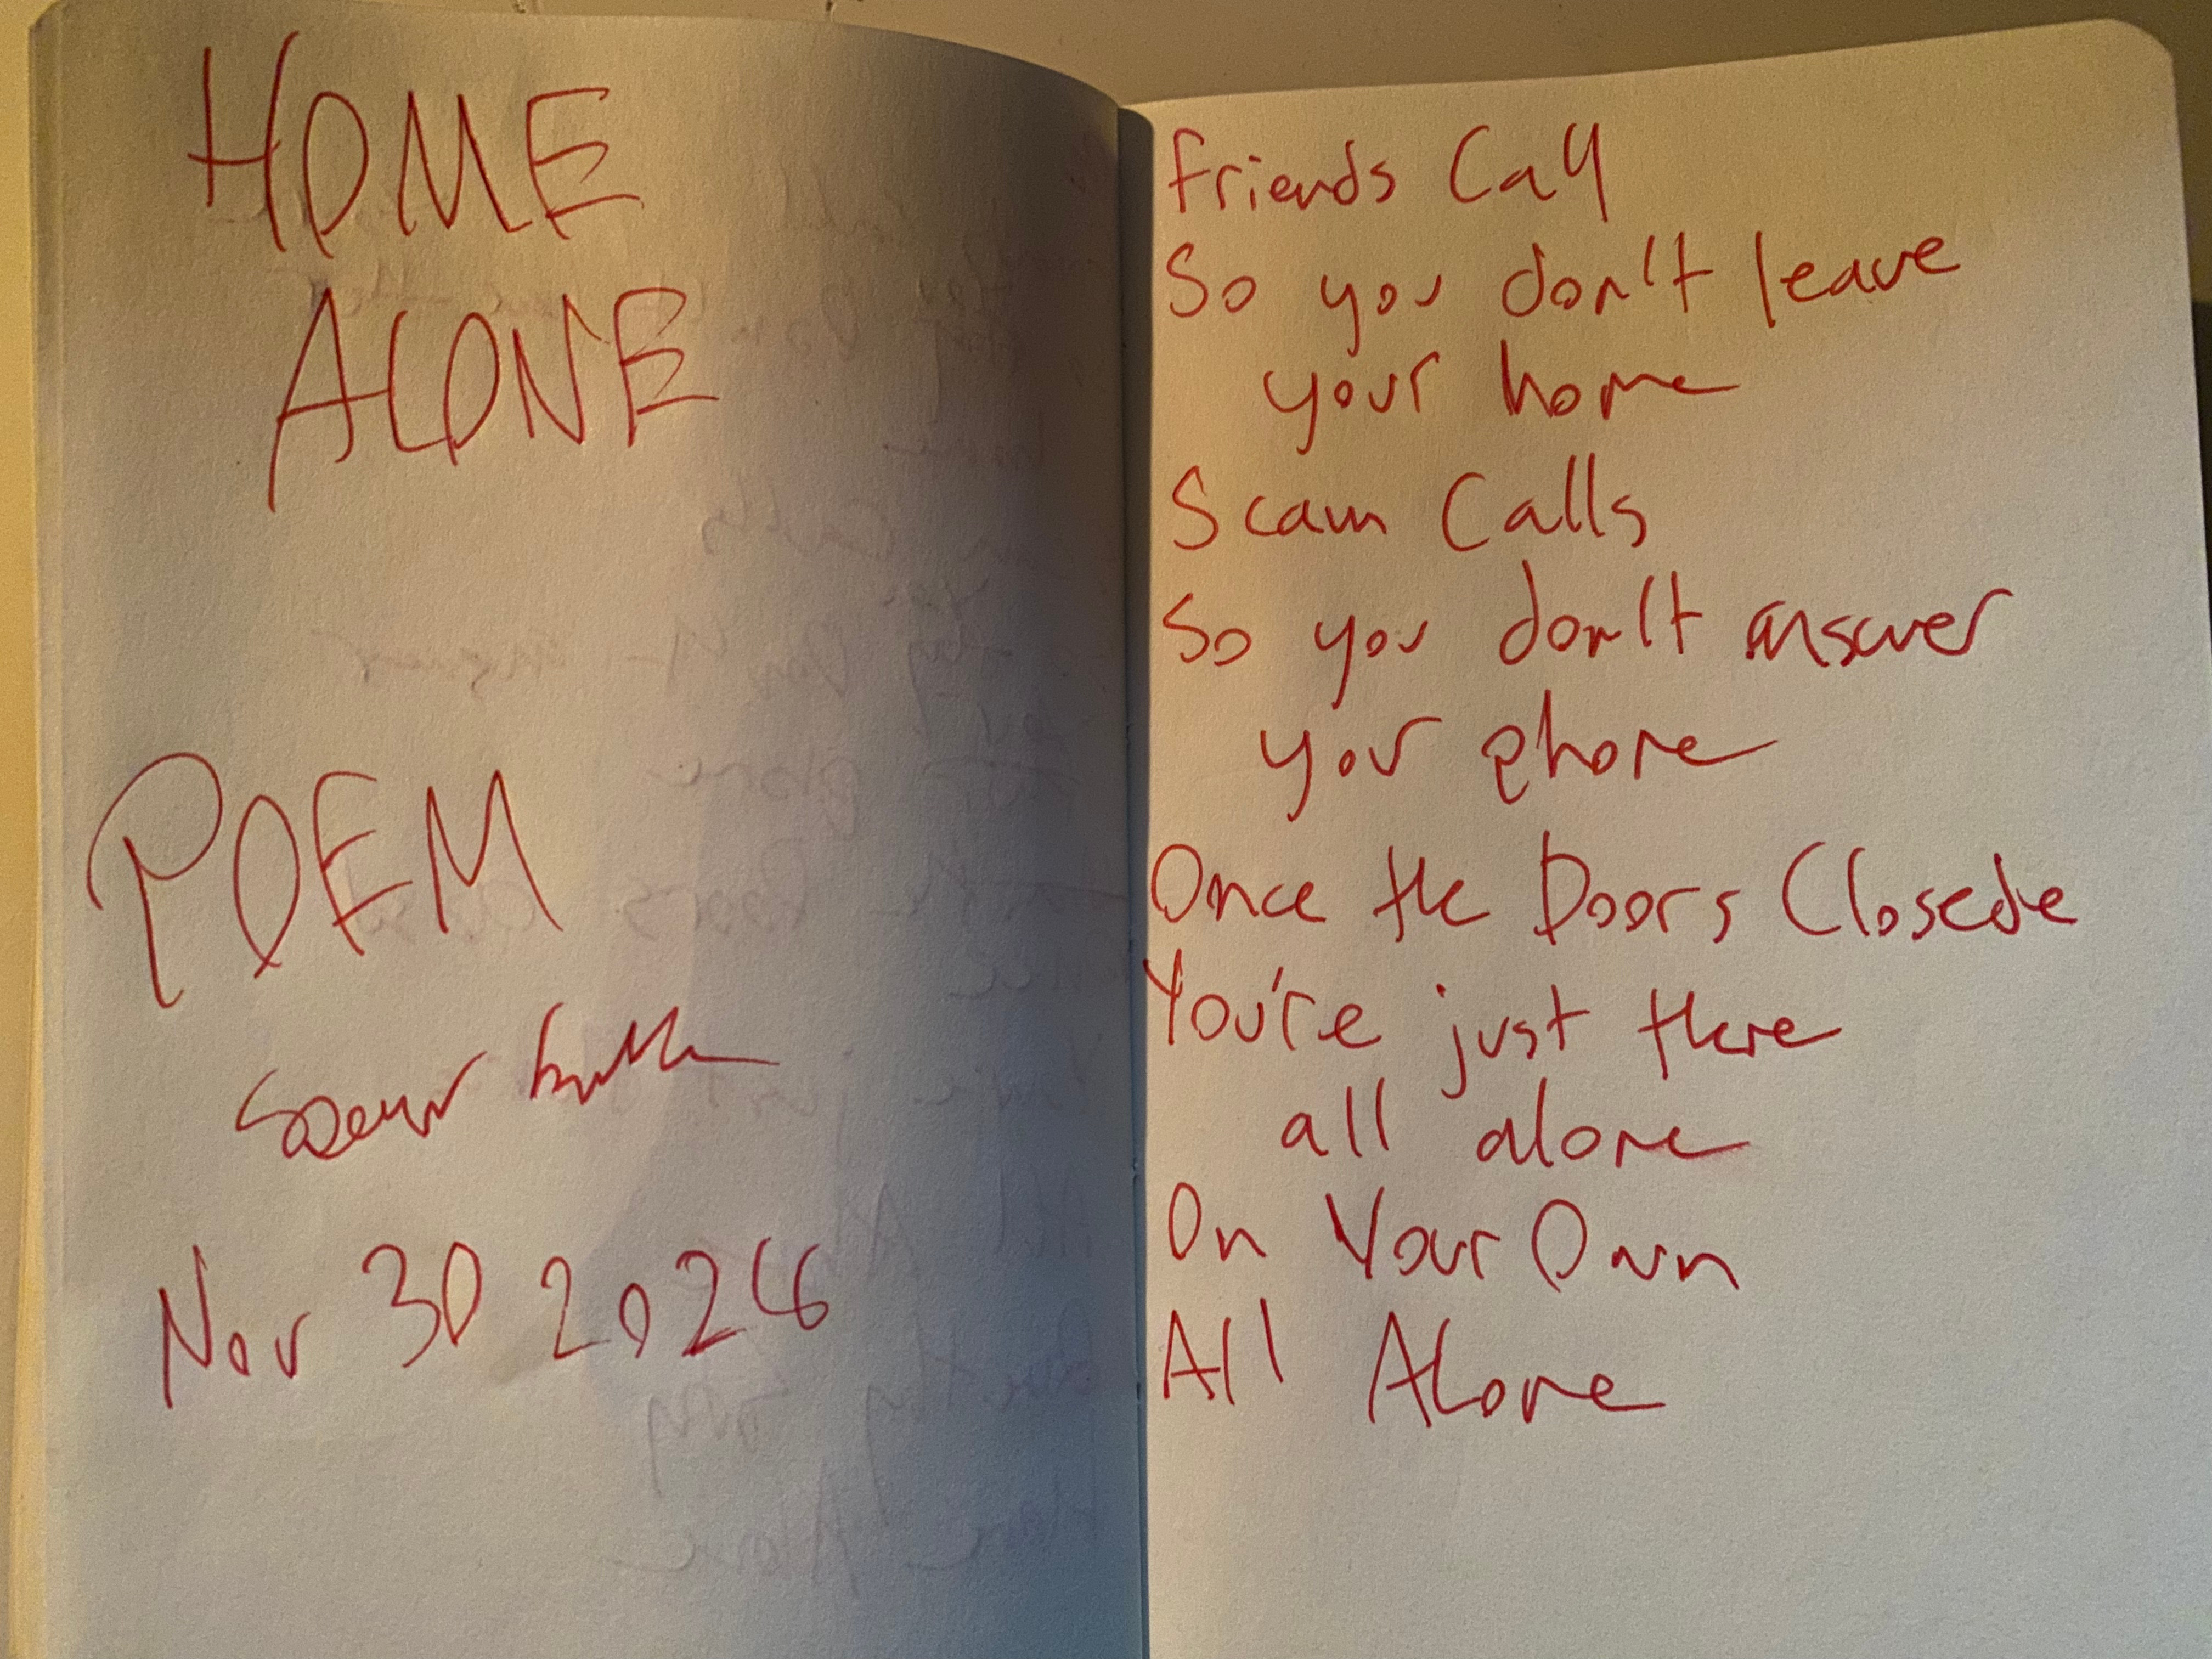 HOME
ALONE
POEM
Nov 30 202
Friends Call
So you don't leave
your home
Scam Calls
So you don't answer
your phone
Once the Doors Closede
You're just there
all alone
On Your Own
All Alone